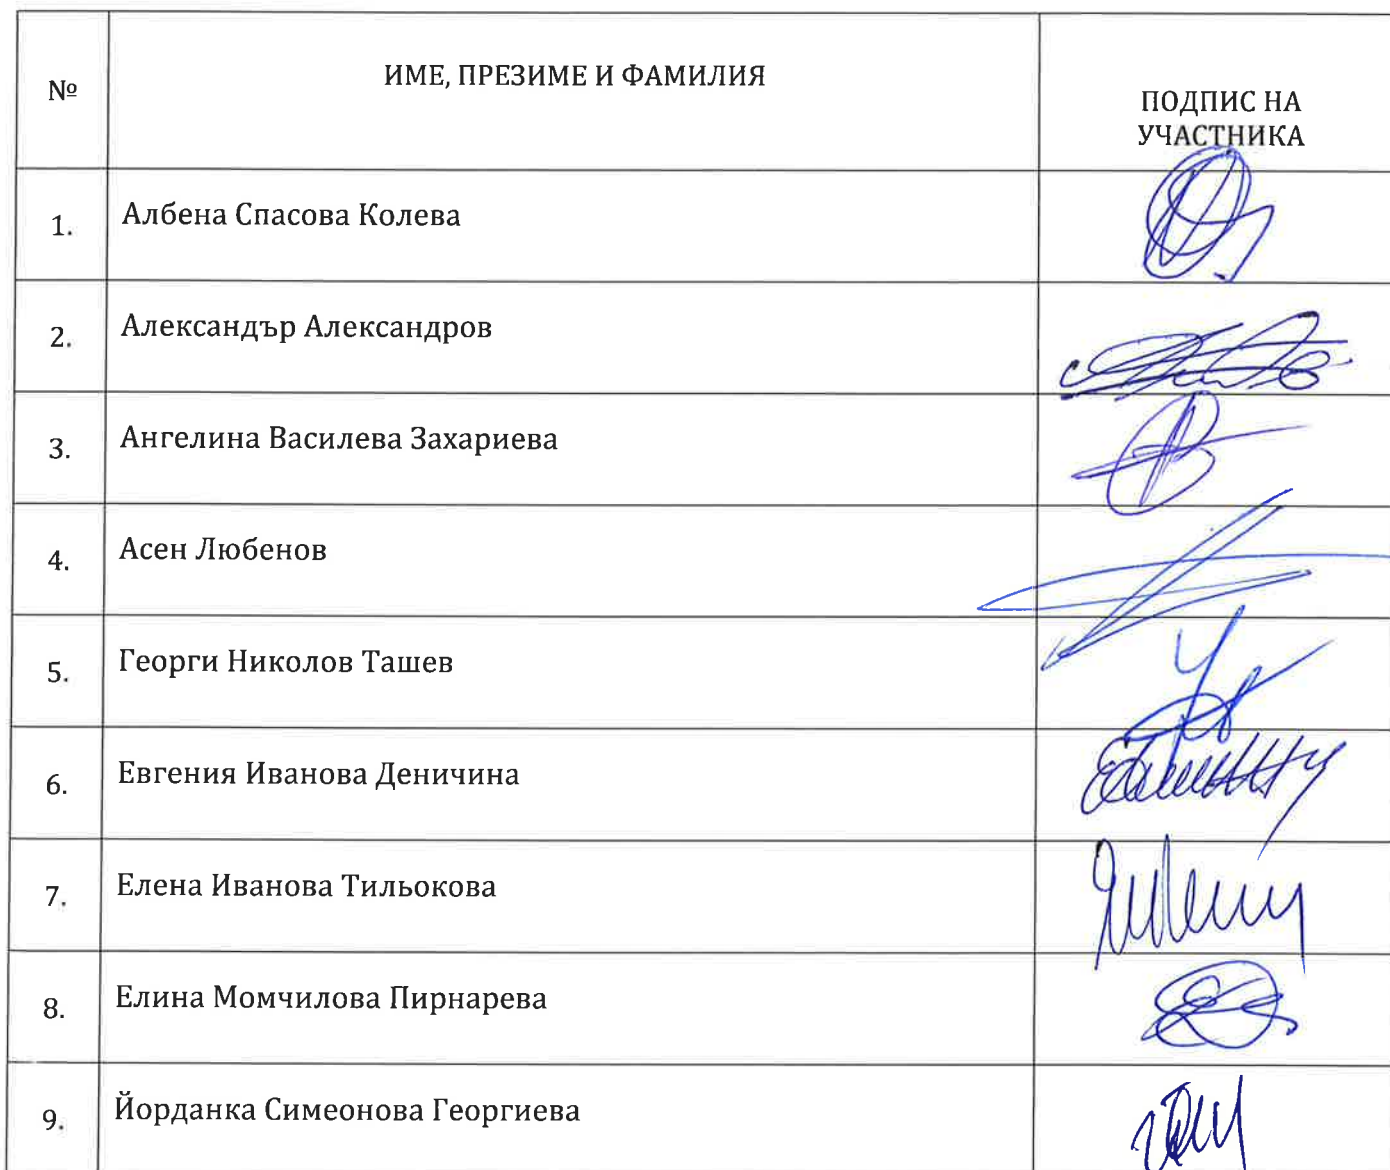 №
ИМЕ, ПРЕЗИМЕ И ФАМИЛИЯ
ПОДПИС НА
УЧАСТНИКА
1. Албена Спасова Колева
2. Александър Александров
3. Ангелина Василева Захариева
4. Асен Любенов
5. Георги Николов Ташев
6. Евгения Иванова Деничина
7. Елена Иванова Тильокова
8. Елина Момчилова Пирнарева
9. Йорданка Симеонова Георгиева